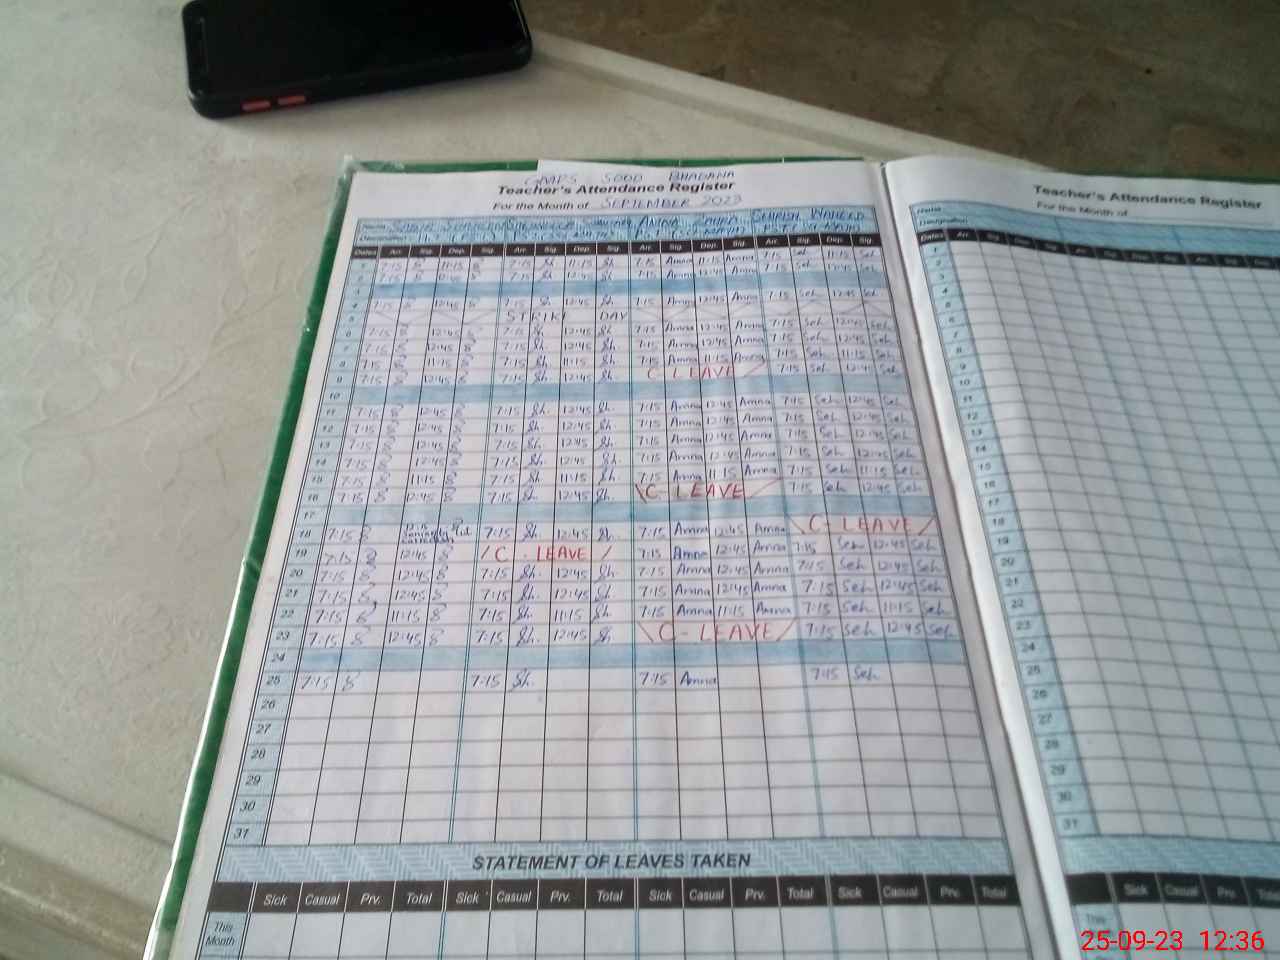 GMPS SOOD BHADANA
Teacher's Attendance Register
For the Month of SEPTEMBER 2023
Name
Designation
Dates Arr. Sig. Dep. Sig. Arr. Sig. Dep. Sig. Arr. Sig. Dep. Sig. Arr. Sig. Dep. Sig.
1 7:15 11:15 7:15 Sh 11:15 Sh 7:15 Amna 11:15 Amna 7:15 Seh 11:15 Seh
4 7:15 8 12:45 8 7:15 Sh 12:45 Sh 7:15 Amna 12:45 Amna 7:15 Seh 12:45 Seh
5 STRIKE DAY
6 7:15 8 12:45 8 7:15 Sh. 12:45 Sh. 7:15 Amna 12:45 Amna 7:15 Seh 12:45 Seh
7 7:15 8 12:45 8 7:15 Sh. 12:45 Sh. 7:15 Amna 12:45 Amna 7:15 Seh 12:45 Seh
8 7:15 8 11:15 8 7:15 Sh. 11:15 Sh. 7:15 Amna 11:15 Amna 7:15 Seh 11:15 Seh
9 7:15 8 12:45 8 7:15 Sh. 12:45 Sh. C LEAVE 7:15 Seh 12:45 Seh
10
11 7:15 8 12:45 8 7:15 Sh. 12:45 Sh. 7:15 Amna 12:45 Amna 7:15 Seh 12:45 Seh
12 7:15 8 12:45 8 7:15 Sh. 12:45 Sh. 7:15 Amna 12:45 Amna 7:15 Seh 12:45 Seh
13 7:15 8 12:45 8 7:15 Sh. 12:45 Sh. 7:15 Amna 12:45 Amna 7:15 Seh 12:45 Seh
14 7:15 8 12:45 8 7:15 Sh. 12:45 Sh. 7:15 Amna 12:45 Amna 7:15 Seh 12:45 Seh
15 7:15 8 11:15 8 7:15 Sh. 11:15 Sh. 7:15 Amna 11:15 Amna 7:15 Seh 11:15 Seh
16 7:15 8 12:45 8 7:15 Sh. 12:45 Sh. C - LEAVE 7:15 Seh 12:45 Seh
17
18 7:15 8 7:15 Sh. 12:45 Sh. 7:15 Amna 12:45 Amna C - LEAVE
19 7:15 8 12:45 8 C - LEAVE 7:15 Amna 12:45 Amna 7:15 Seh 12:45 Seh
20 7:15 8 12:45 8 7:15 Sh. 12:45 Sh. 7:15 Amna 12:45 Amna 7:15 Seh 12:45 Seh
21 7:15 8 12:45 8 7:15 Sh. 12:45 Sh. 7:15 Amna 12:45 Amna 7:15 Seh 12:45 Seh
22 7:15 8 11:15 8 7:15 Sh. 11:15 Sh. 7:15 Amna 11:15 Amna 7:15 Seh 11:15 Seh
23 7:15 8 12:45 8 7:15 Sh. 12:45 Sh C - LEAVE 7:15 Seh 12:45 Seh
24
25 7:15 8 7:15 Sh. 7:15 Amna 7:15 Seh
26
27
28
29
30
31
STATEMENT OF LEAVES TAKEN
Sick Casual Prv. Total Sick Casual Prv. Total Sick Casual Prv. Total Sick Casual Prv. Total
This Month
Teacher's Attendance Register
For the Month of
Name
Designation
Dates
1
3
4
5
6
7
8
9
10
11
12
13
14
15
16
17
18
19
20
21
22
23
24
25
26
27
28
29
30
31
Sick Casual Prv. Total
This
25-09-23 12:36